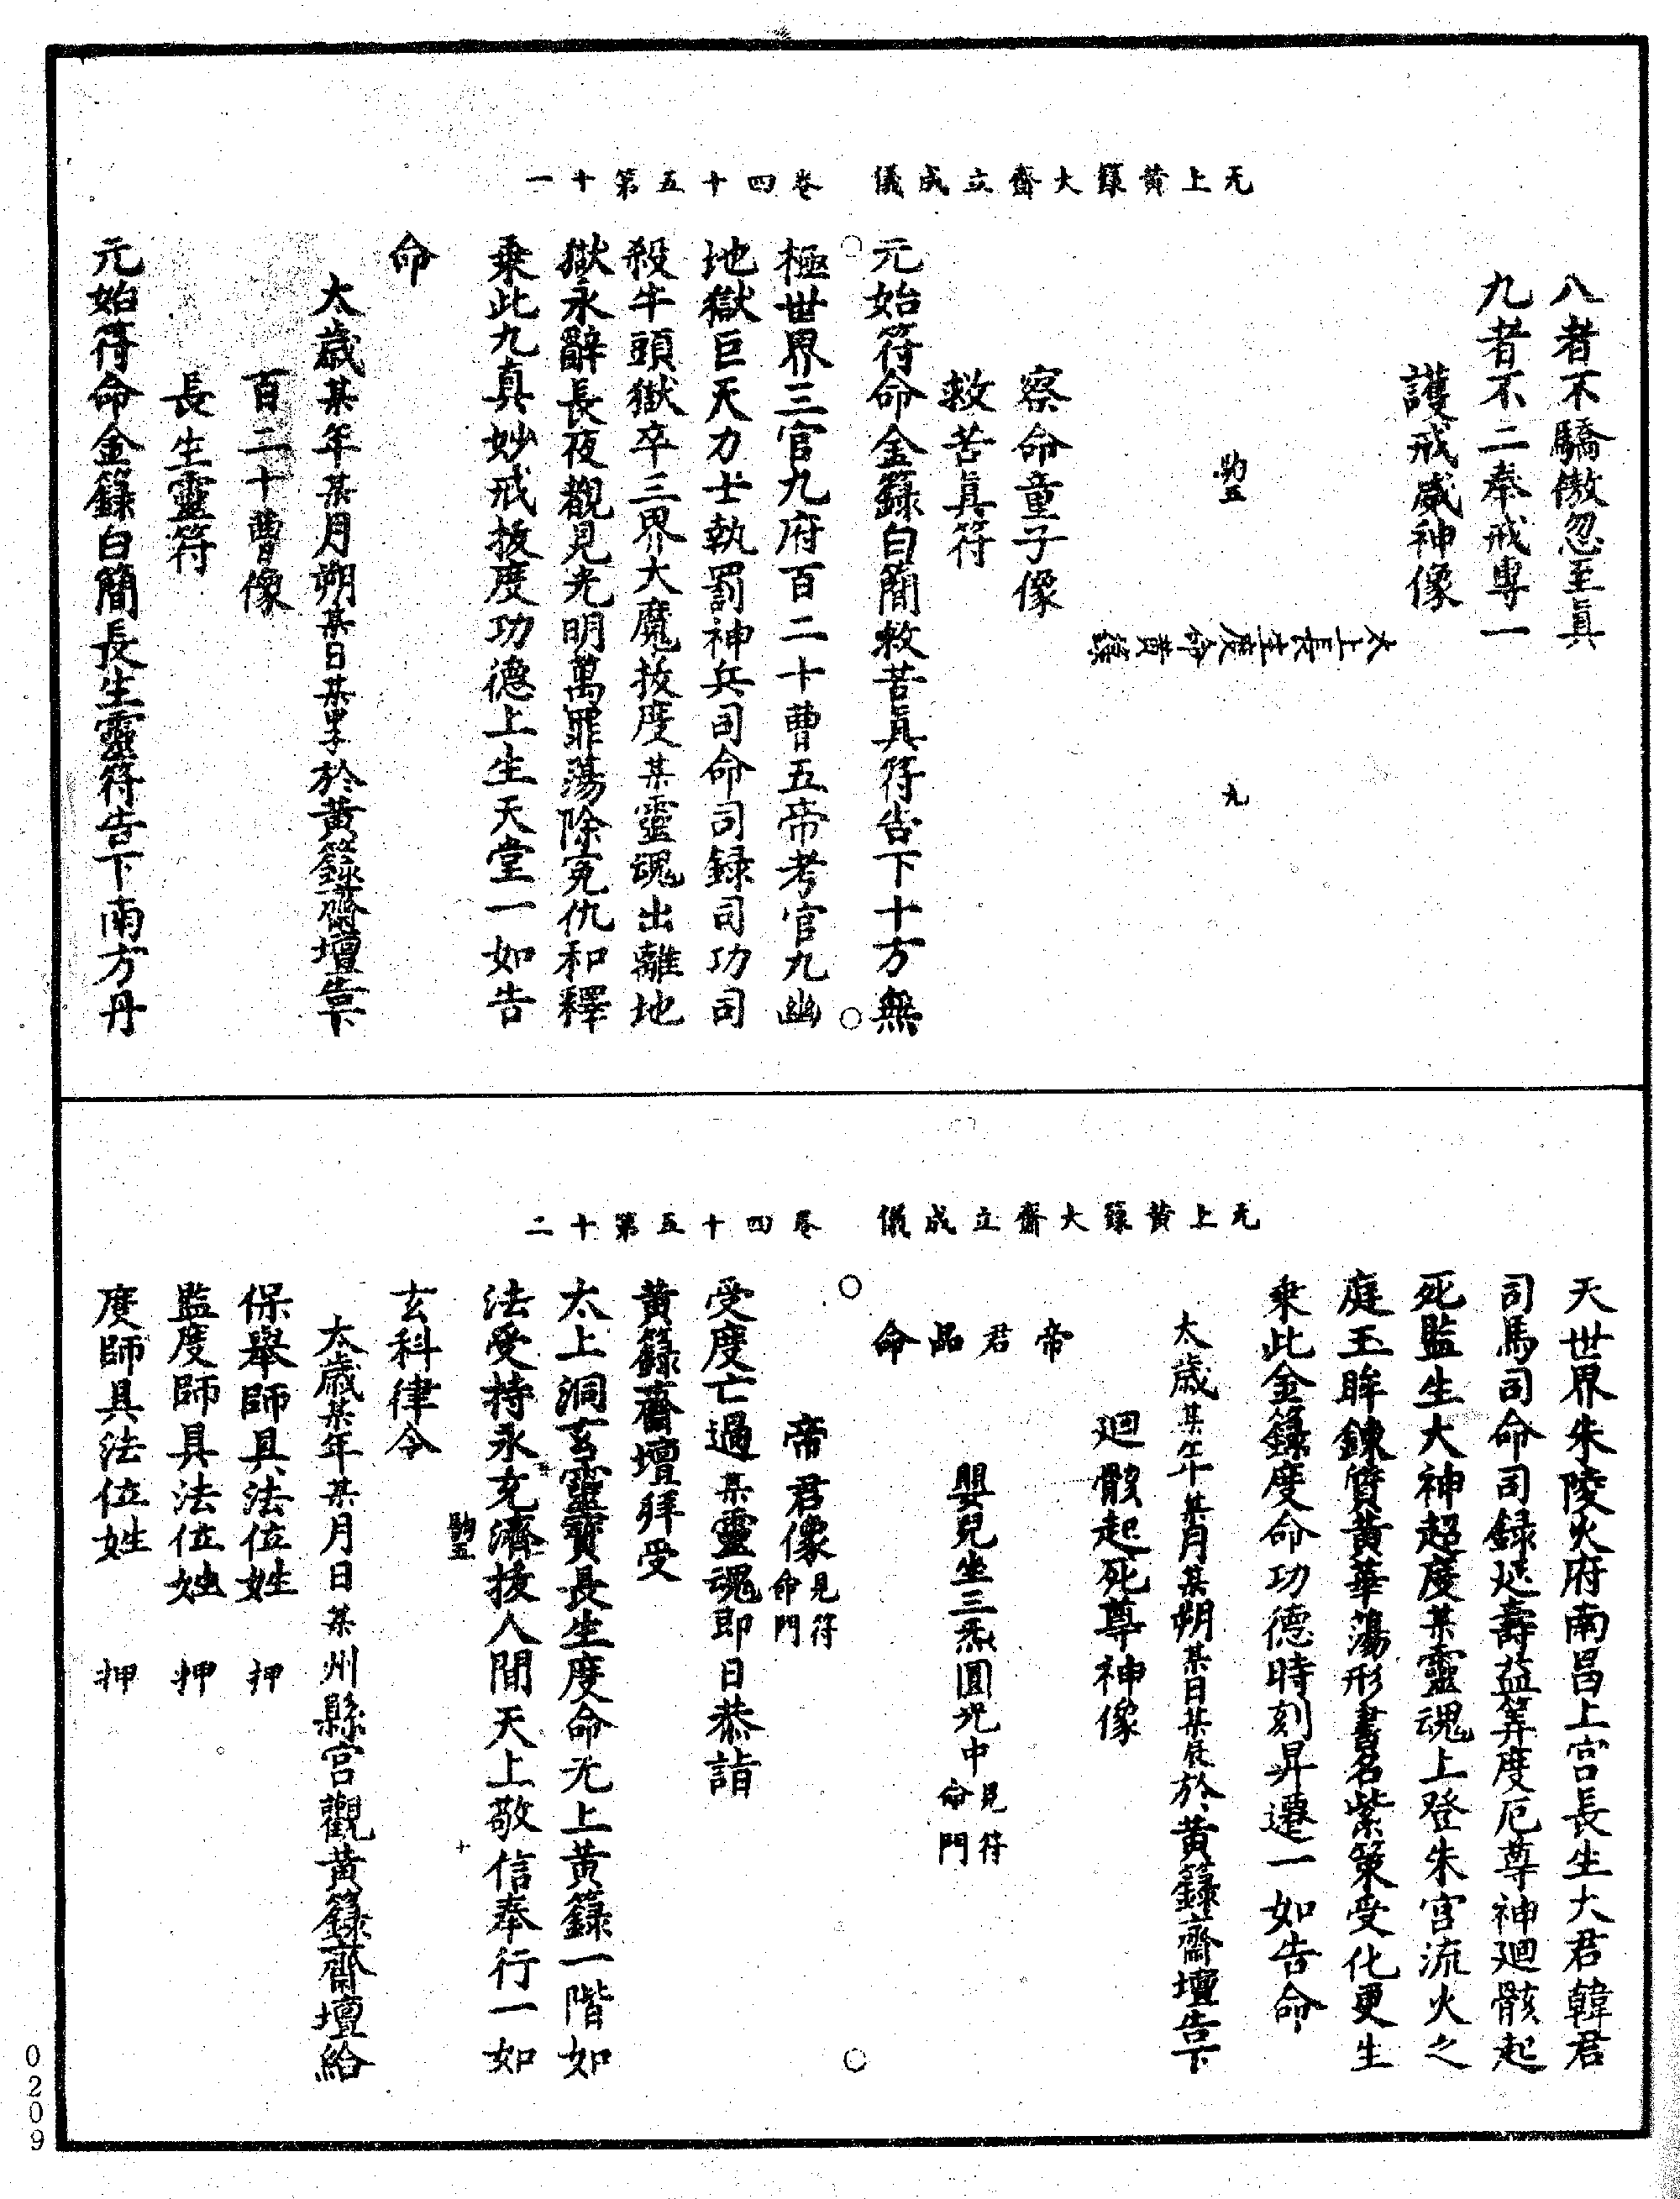 无上黃籙大齋立成儀　卷四十五第十一
八者不驕傲忽至眞
九者不二奉戒專一
護戒威神像
太上長生度命黃籙
駒五　九
察命童子像
救苦眞符
元始符命金籙白簡救苦眞符告下十方無
極世界三官九府百二十曹五帝考官九幽
地獄巨天力士執罰神兵司命司錄司功司
殺牛頭獄卒三界大魔拔度某靈魂出離地
獄永辭長夜覩見光明萬罪蕩除寃仇和釋
乗此九真妙戒拔度功德上生天堂一如告
命
太歲某年某月朔某日某甲子於黃籙齋壇告下
百二十曹像
長生靈符
元始符命金籙白簡長生靈符告下南方丹
无上黃籙大齋立成儀　卷四十五第十二
天世界朱陵火府南昌上宮長生大君韓君
司馬司命司錄延壽益筭度厄尊神廻骸起
死監生大神超度某靈魂上登朱宮流火之
庭玉眸鍊質黃華蕩形書名紫策受化更生
乗此金籙度命功德時刻昇遷一如告命
太歲某年某月某朔某日某辰於黃籙齋壇告下
廻骸起死尊神像
帝君品命
嬰兒坐三炁圓光中見符命門
帝君像見符命門
受度亡過某靈魂即日恭詣
黃籙齋壇拜受
太上洞玄靈寶長生度命无上黃籙一階如
法受持永充濟拔人間天上敬信奉行一如
駒五　十
玄科律令
太歲某年某月日某州縣宮觀黃籙齋壇給
保舉師具法位姓　押
監度師具法位姓　押
度師具法位姓　押
0209